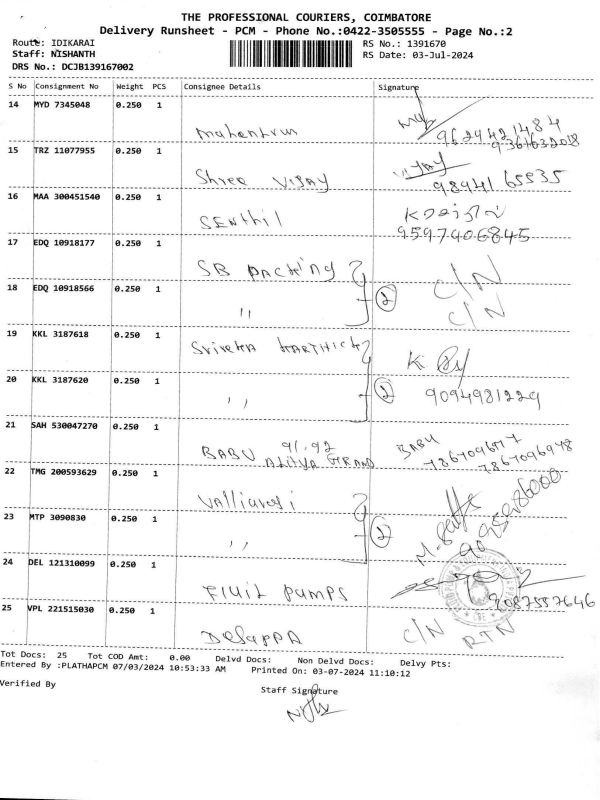 THE PROFESSIONAL COURIERS, COIMBATORE
Delivery Runsheet - PCM - Phone No.:0422-3505555 - Page No.:2
Route: IDIKARAI
RS No.: 1391670
Staff: NISHANTH
RS Date: 03-Jul-2024
DRS No.: DCJB139167002
S No Consignment No Weight PCS Consignee Details Signature
14 MYD 7345048 0.250 1
Mahendran
15 TRZ 11077955 0.250 1
Shree Vijay
Vijay
98941 65535
16 MAA 300451540 0.250 1
Senthil
9597406845
17 EDQ 10918177 0.250 1
SB Packing
C/N
18 EDQ 10918566 0.250 1
"
2
C/N
19 KKL 3187618 0.250 1
Srirekha Karthick
K
20 KKL 3187620 0.250 1
"
2
9094981229
21 SAH 530047270 0.250 1
Babu 91,92 Aditya Grand
Babu
7867096978
22 TMG 200593629 0.250 1
Valliavasi
23 MTP 3090830 0.250 1
"
2
24 DEL 121310099 0.250 1
Fluit Pumps
9087557646
25 VPL 221515030 0.250 1
C/N RTN
Tot Docs: 25 Tot COD Amt: 0.00 Delvd Docs: Non Delvd Docs: Delvy Pts:
Entered By :PLATHAPCM 07/03/2024 10:53:33 AM Printed On: 03-07-2024 11:10:12
Verified By
Staff Signature